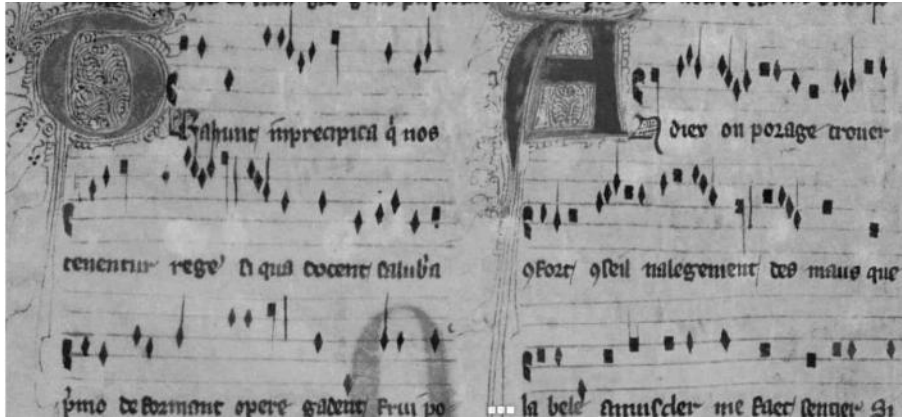 Trahunt inprecipicia q̃ nos
tenentur rege' si qua docent salub'a
p̃mo deformant opere gaudent frui po
A diex ou porage trover
9fort 9seil nalegement des maus que
la bele me fact sentir Si